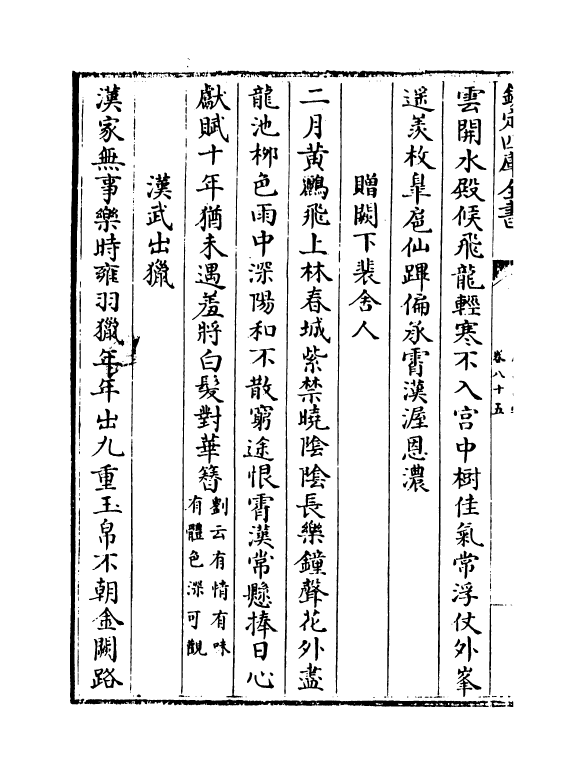 欽定四庫全書
卷八十五
雲開水殿候飛龍輕寒不入宮中樹佳氣常浮仗外峯
遥羡枚臯扈仙蹕偏承霄漢渥恩濃
贈闕下裴舍人
二月黄鸝飛上林春城紫禁曉隂隂長樂鐘聲花外盡
龍池栁色雨中深陽和不散窮途恨霄漢常懸捧日心
獻賦十年猶未遇羞將白髮對華簪劉云有情有味
有體色深可觀
漢武出獵
漢家無事樂時雍羽獵年年出九重玉帛不朝金闕路